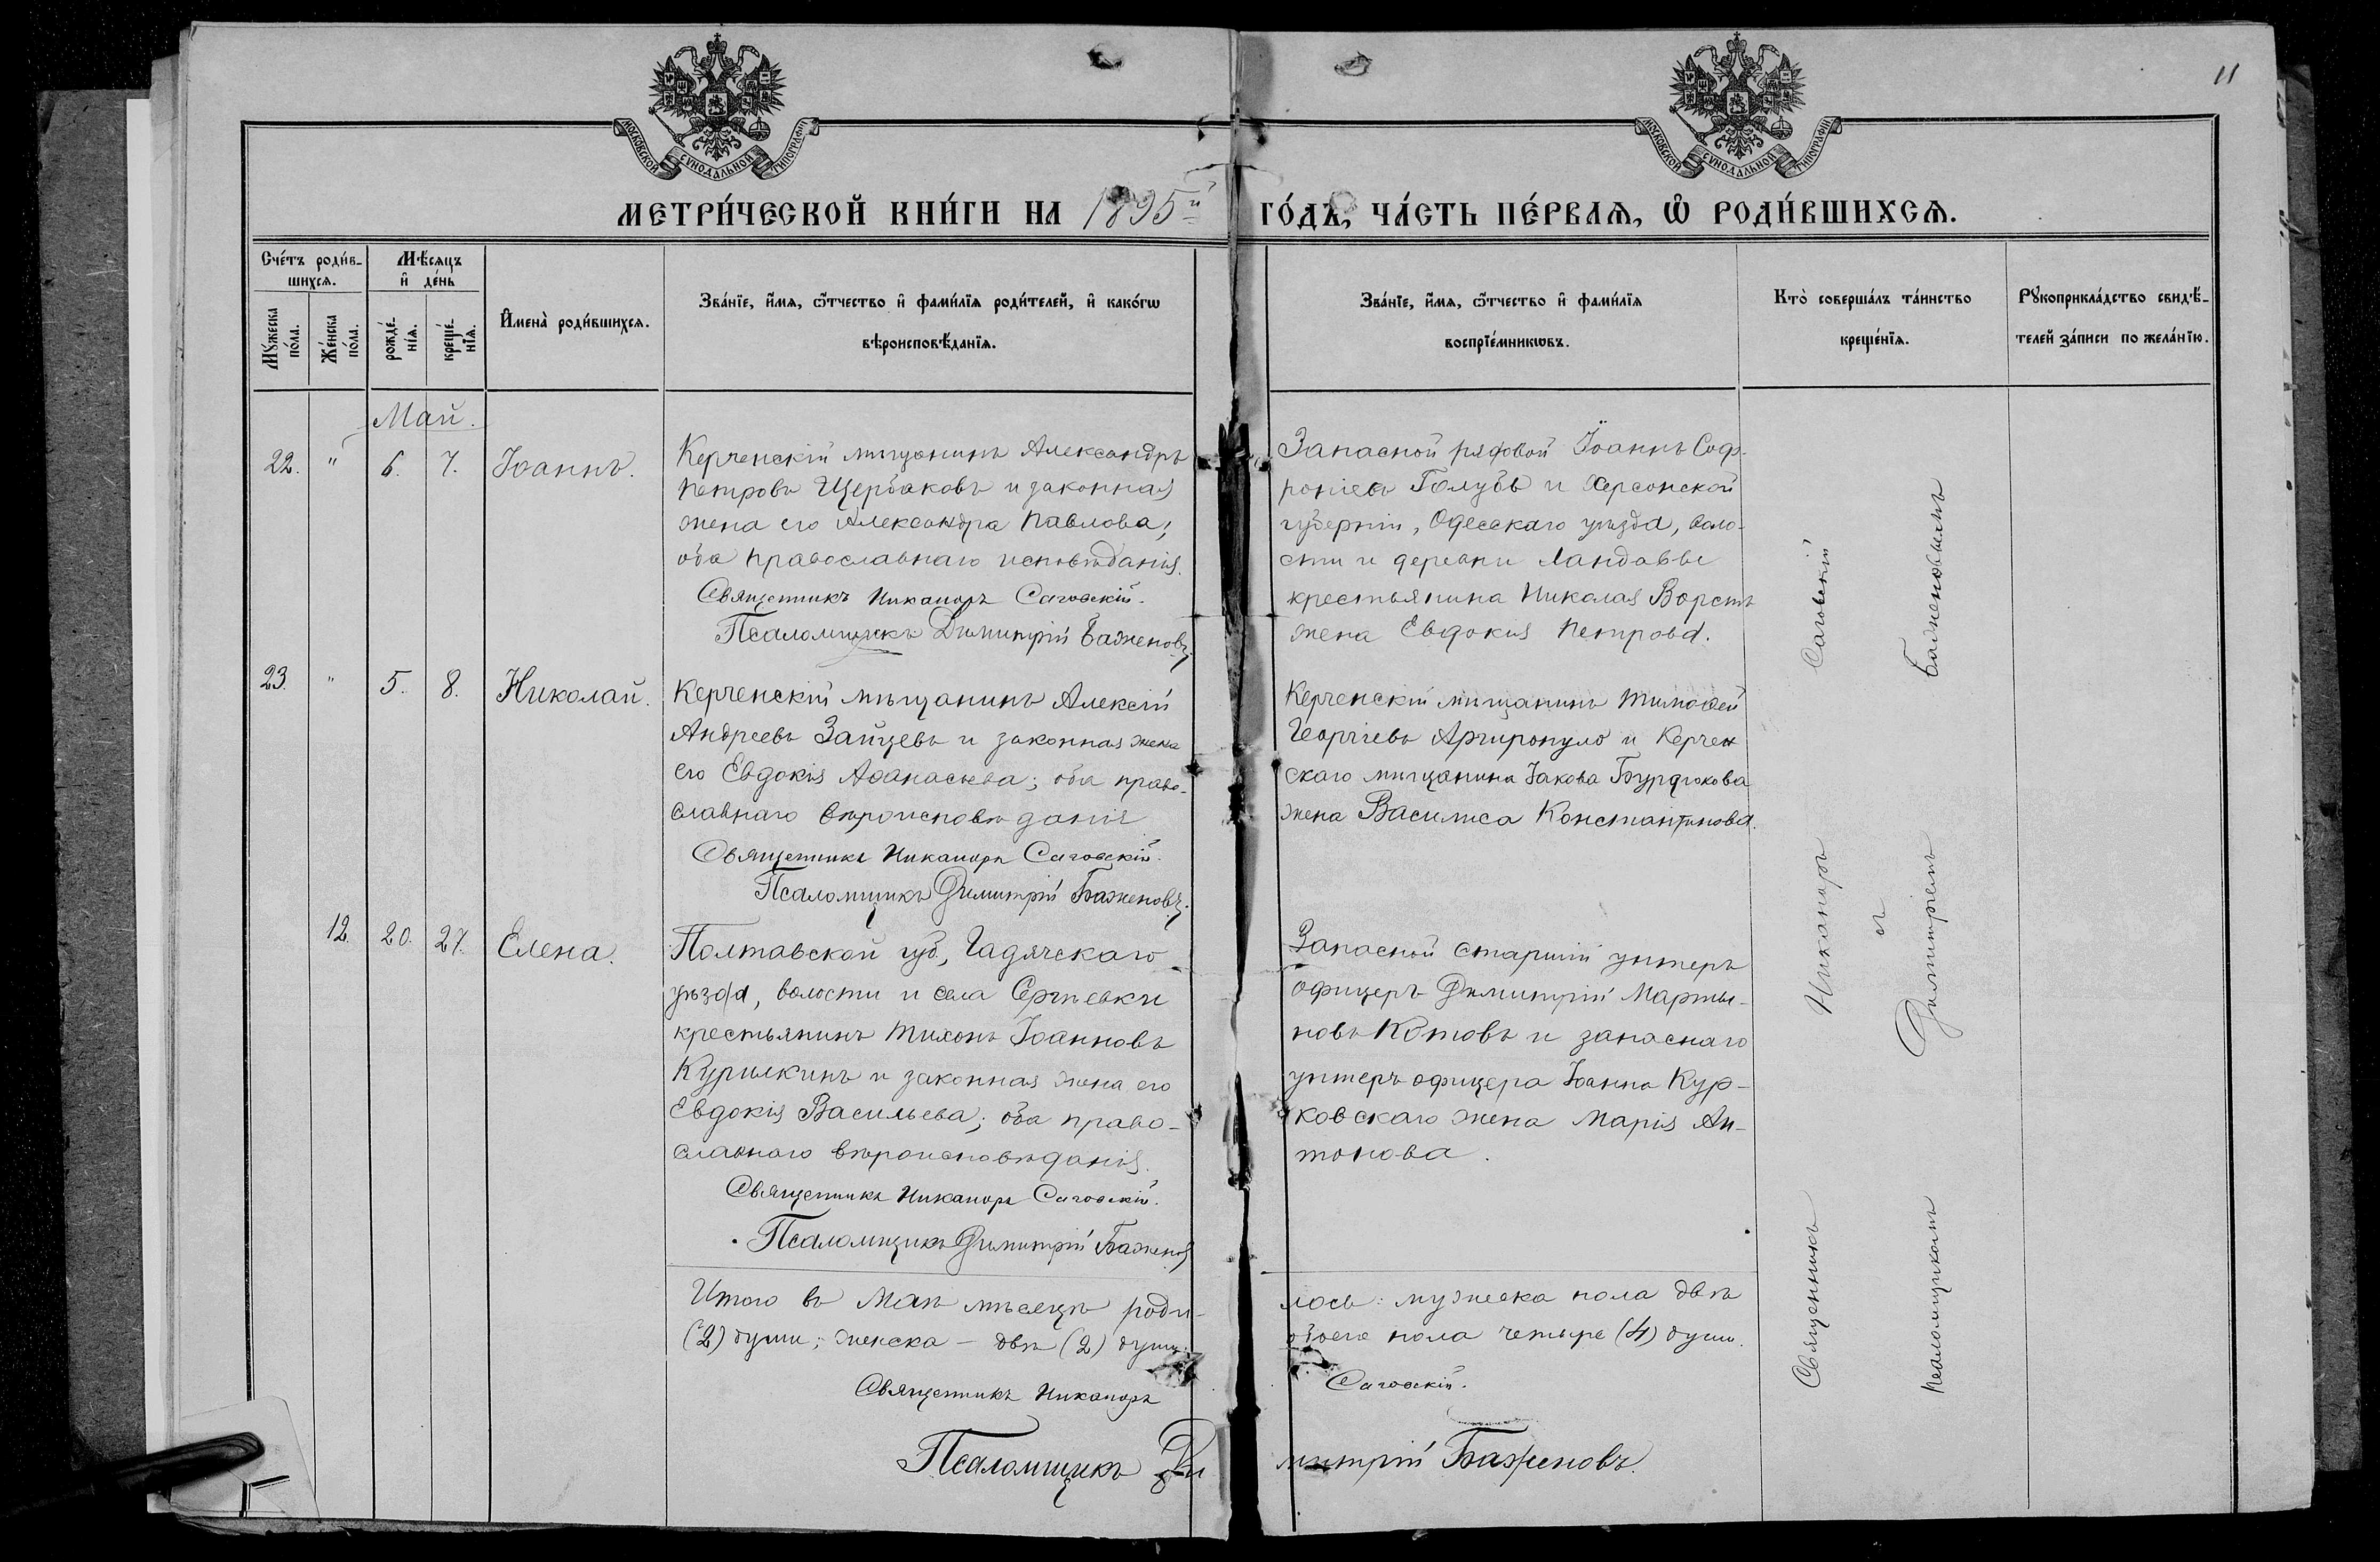 11
МОСКОВСКОЙ СУНОДАЛЬНОЙ ТИПОГРАФІИ
МОСКОВСКОЙ СУНОДАЛЬНОЙ ТИПОГРАФІИ
МЕТРИ́ЧЕСКОЙ КНИ́ГИ НА 1895й ГО́ДЪ, ЧА́СТЬ ПЕ́РВАѦ, Ѡ҆ РОДИ́ВШИХСѦ.
Сче́тъ роди́в-
шихсѧ.
Мꙋ́жеска
по́ла.
Же́нска
по́ла.
Мѣ́сѧцъ
и҆ де́нь
рожде́-
нїѧ.
креще́-
нїѧ.
И҆мена̀ роди́вшихсѧ.
Зва́нїе, и҆́мѧ, ѻ҆́тчество и҆ фами́лїѧ роди́телей, и҆ како́гѡ
вѣроисповѣ́данїѧ.
Зва́нїе, и҆́мѧ, ѻ҆́тчество и҆ фами́лїѧ
воспрїе́мникѡвъ.
Кто̀ соверша́лъ та́инство
креще́нїѧ.
Рꙋкоприкла́дство свидѣ́-
телей за́писи по жела́нїю.
Май.
22. " 6. 7. Іоаннъ.
Керченскій мѣщанинъ Александръ
Петровъ Щербаковъ и законная
жена его Александра Павлова;
оба православнаго исповѣданія.
Священникъ Никаноръ Саговскій.
Псаломщикъ Димитрій Баженовъ.
Запасной рядовой Іоаннъ Соф-
роніевъ Голубъ и Херсонской
губерніи, Одесскаго уѣзда, воло-
сти и деревни Ландаввы
крестьянина Николая Ворстъ
жена Евдокія Петрова.
23. " 5. 8. Николай.
Керченскій мѣщанинъ Алексій
Андреевъ Зайцевъ и законная жена
его Евдокія Аѳанасьева; оба право-
славнаго вѣроисповѣданія
Священникъ Никаноръ Саговскій.
Псаломщикъ Димитрій Баженовъ.
Керченскій мѣщанинъ Тимоѳей
Георгіевъ Аргиропуло и Керчен
скаго мѣщанина Іакова Бурдюкова
жена Василиса Константинова.
12. 20. 27. Елена.
Полтавской губ., Гадячскаго
уѣзда, волости и села Сергѣевки
крестьянинъ Тихонъ Іоанновъ
Курилкинъ и законная жена его
Евдокія Васильева; оба право-
славнаго вѣроисповѣданія.
Священникъ Никаноръ Саговскій.
Псаломщикъ Димитрій Баженовъ
Запасной старшій унтеръ
офицеръ Димитрій Марты-
новъ Котовъ и запаснаго
унтеръ офицера Іоанна Кур-
ковскаго жена Марія Ан-
тонова.
Священникъ Никаноръ Саговскій
и
псаломщикомъ Димитріемъ Баженовымъ
Итого въ Маѣ мѣсяцѣ роди-лось: мужеска пола двѣ
(2) души; женска – двѣ (2) души; обоего пола четыре (4) души.
Священникъ Никаноръ Саговскій.
Псаломщикъ Димитрій Баженовъ.